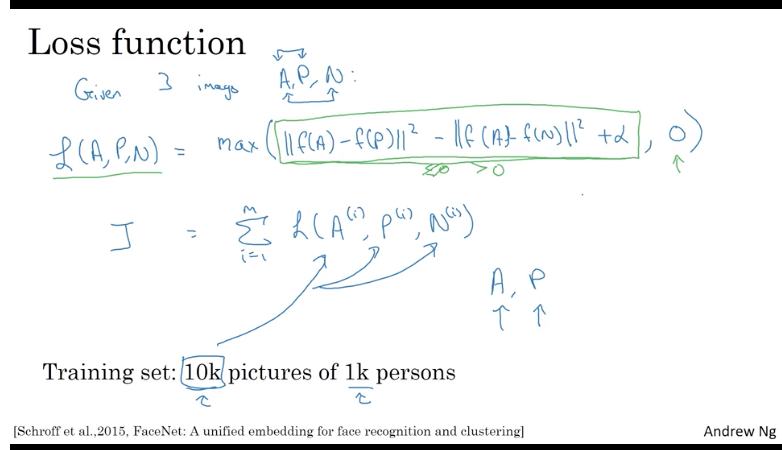 Loss function
Given 3 images A, P, N:
ℒ(A,P,N) = max(||f(A) − f(P)||² − ||f(A) − f(N)||² + α, 0)
≤0 >0
J = Σᵢ₌₁ᵐ ℒ(A⁽ⁱ⁾, P⁽ⁱ⁾, N⁽ⁱ⁾)
A, P
Training set: 10k pictures of 1k persons
[Schroff et al.,2015, FaceNet: A unified embedding for face recognition and clustering]
Andrew Ng